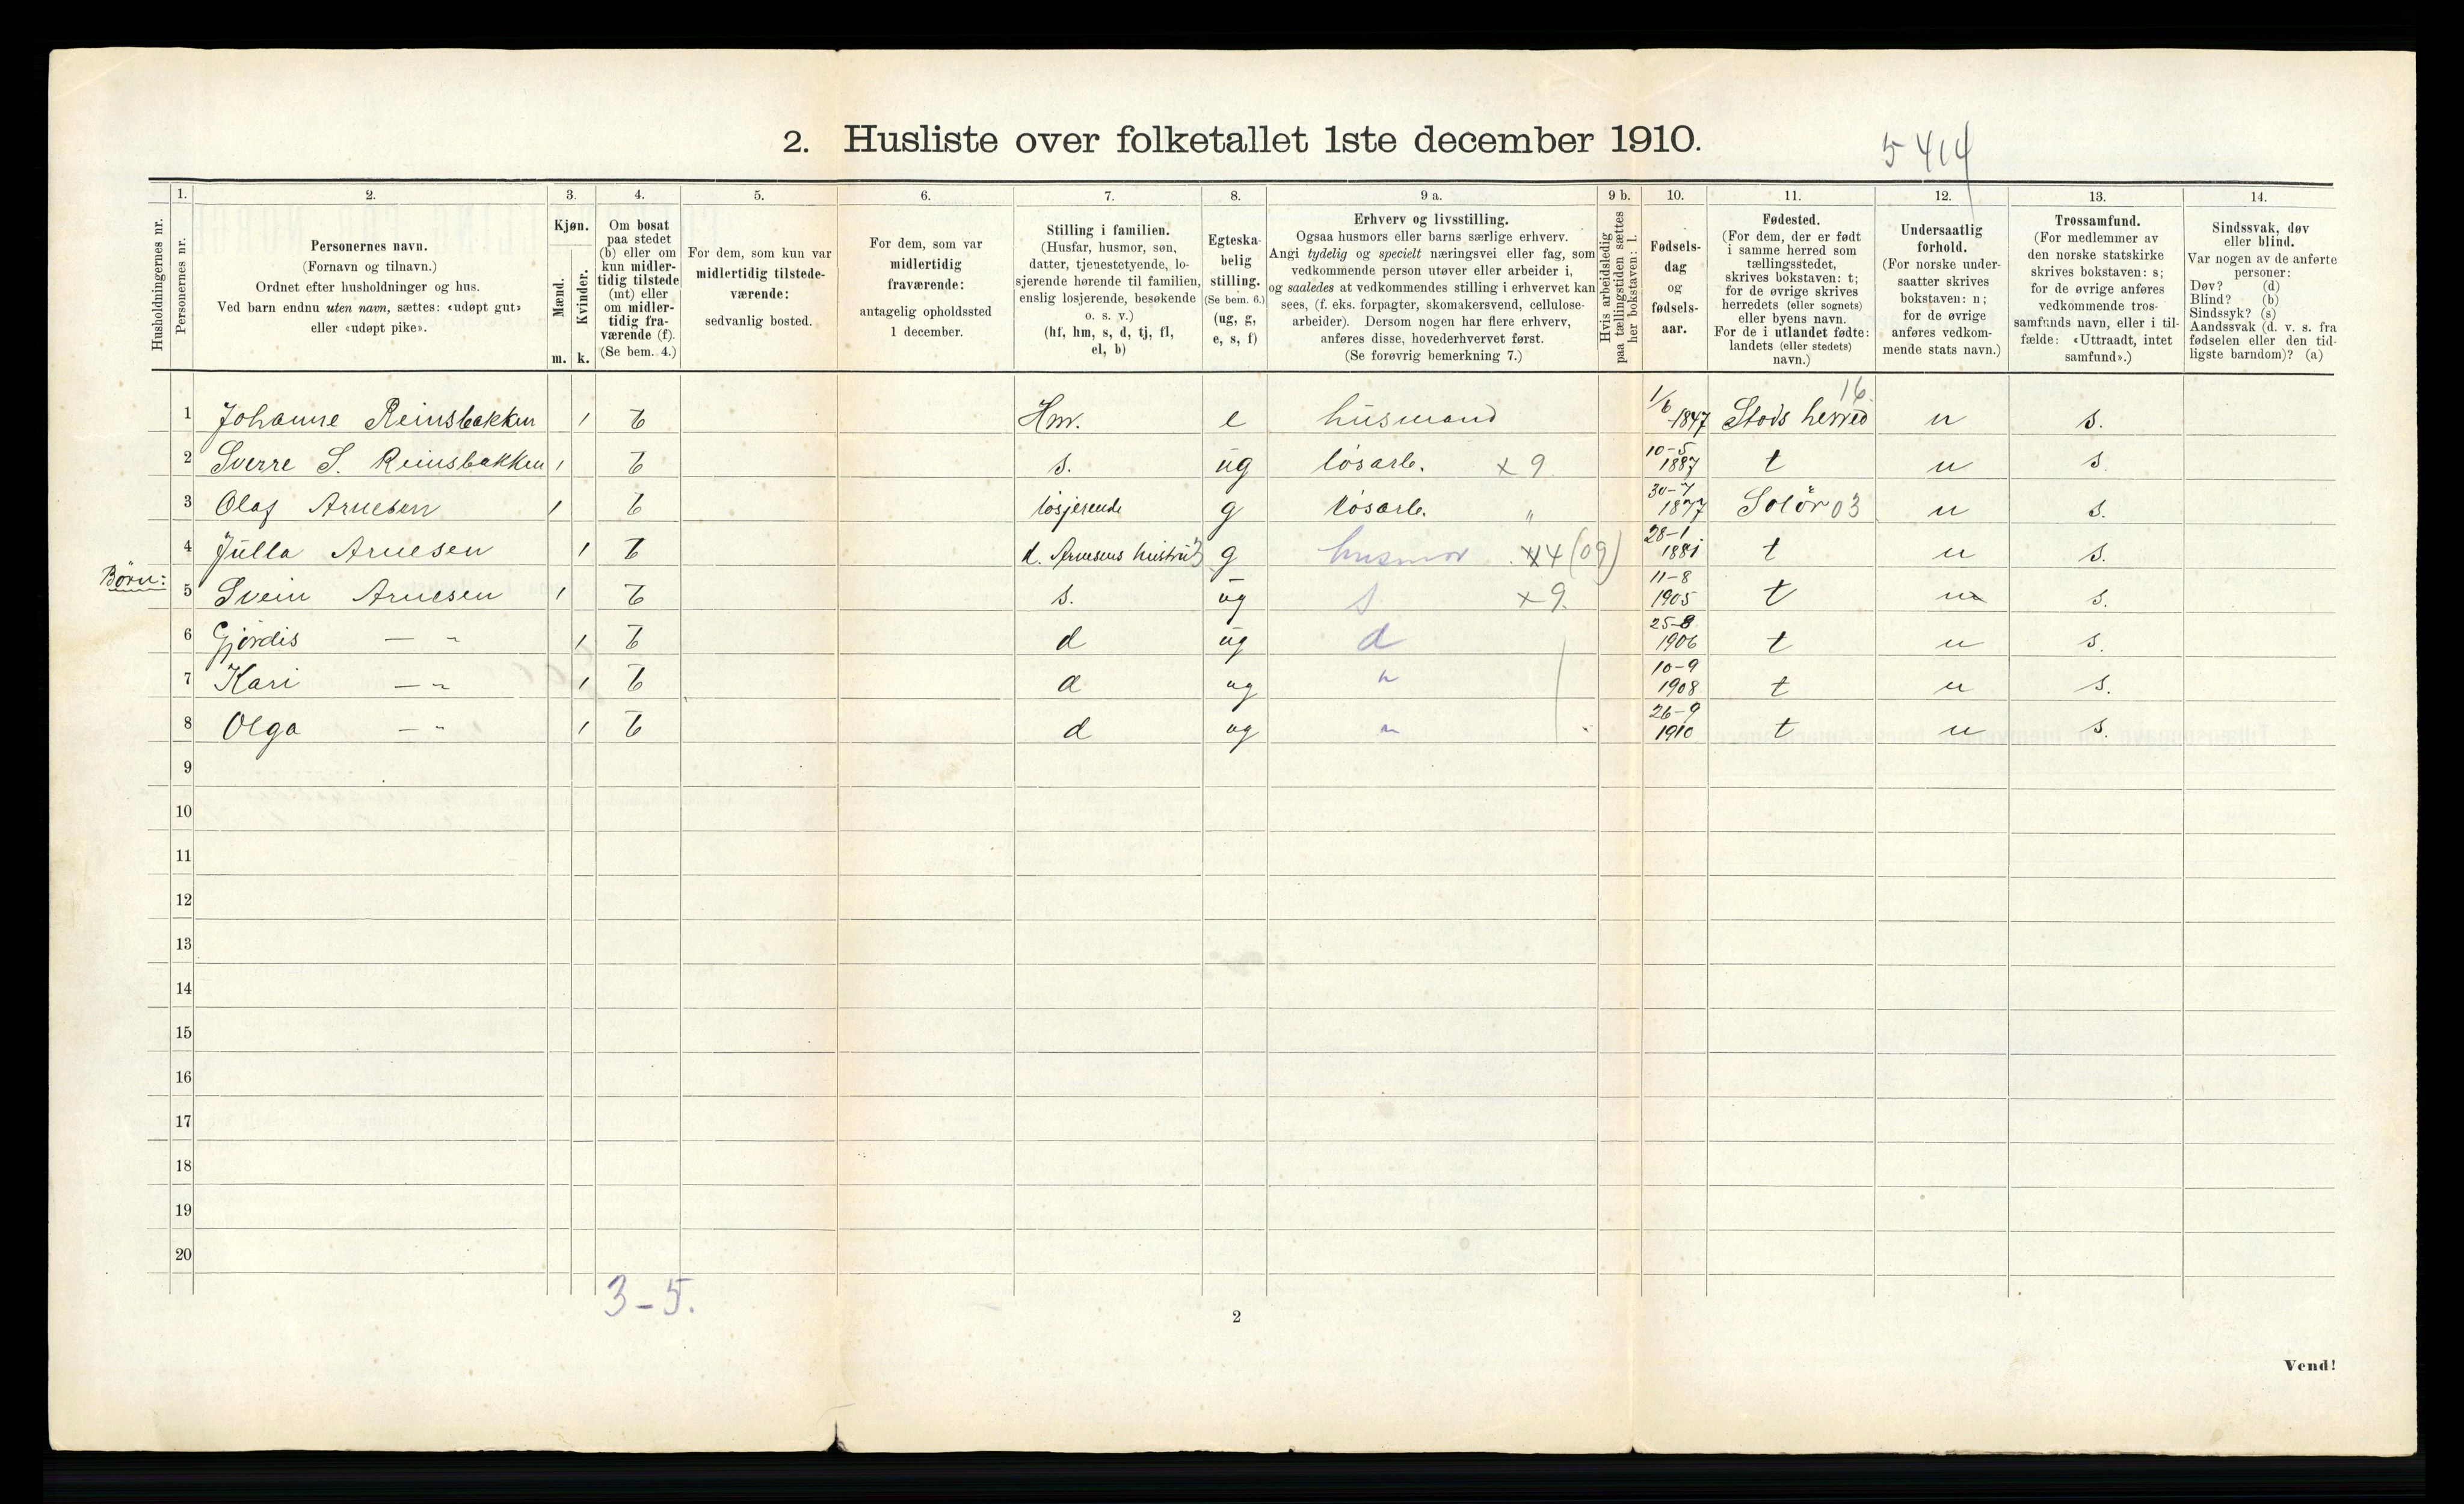 2. Husliste over folketallet 1ste december 1910.
5414
Husholdningernes nr.
1.
Personernes nr.
2.
Personernes navn.
(Fornavn og tilnavn.)
Ordnet efter husholdninger og hus.
Ved barn endnu uten navn, sættes: «udøpt gut»
eller «udøpt pike».
3.
Kjøn.
Mænd.
Kvinder.
m. k.
4.
Om bosat
paa stedet
(b) eller om
kun midler-
tidig tilstede
(mt) eller
om midler-
tidig fra-
værende (f).
(Se bem. 4.)
5.
For dem, som kun var
midlertidig tilstede-
værende:
sedvanlig bosted.
6.
For dem, som var
midlertidig
fraværende:
antagelig opholdssted
1 december.
7.
Stilling i familien.
(Husfar, husmor, søn,
datter, tjenestetyende, lo-
sjerende hørende til familien,
enslig losjerende, besøkende
o. s. v.)
(hf, hm, s, d, tj, fl,
el, b)
8.
Egteska-
belig
stilling.
(Se bem. 6.)
(ug, g,
e, s, f)
9 a.
Erhverv og livsstilling.
Ogsaa husmors eller barns særlige erhverv.
Angi tydelig og specielt næringsvei eller fag, som
vedkommende person utøver eller arbeider i,
og saaledes at vedkommendes stilling i erhvervet kan
sees, (f. eks. forpagter, skomakersvend, cellulose-
arbeider). Dersom nogen har flere erhverv,
anføres disse, hovederhvervet først.
(Se forøvrig bemerkning 7.)
9 b.
Hvis arbeidsledig
paa tællingstiden sættes
her bokstaven: l.
10.
Fødsels-
dag
og
fødsels-
aar.
11.
Fødested.
(For dem, der er født
i samme herred som
tællingsstedet,
skrives bokstaven: t;
for de øvrige skrives
herredets (eller sognets)
eller byens navn.
For de i utlandet fødte:
landets (eller stedets)
navn.)
12.
Undersaatlig
forhold.
(For norske under-
saatter skrives
bokstaven: n;
for de øvrige
anføres vedkom-
mende stats navn.)
13.
Trossamfund.
(For medlemmer av
den norske statskirke
skrives bokstaven: s;
for de øvrige anføres
vedkommende tros-
samfunds navn, eller i til-
fælde: «Uttraadt, intet
samfund».)
14.
Sindssvak, døv
eller blind.
Var nogen av de anførte
personer:
Døv? (d)
Blind? (b)
Sindssyk? (s)
Aandssvak (d. v. s. fra
fødselen eller den tid-
ligste barndom)? (a)
1 Johanne Reinsbakken 1 b Hm. e husmand 1/6 1847 Stods herred 16. n s.
2 Sverre S. Reinsbakken 1 b s. ug løsarb. x 9 10-5 1887 t n s
3 Olaf Arnesen 1 b losjerende g løsarb. " 30-7 1877 Solör 03 n s.
4 Julla Arnesen 1 b d. Arnesens hustru g husmor x4 (09) 28-1 1881 t n s.
Børn:
5 Svein Arnesen 1 b s. ug s x 9. 11-8 1905 t n s.
6 Gjördis — " 1 b d ug d 25-8 1906 t n s.
7 Kari — " 1 b d ug " 10-9 1908 t n s.
8 Olga — " 1 b d ug " 26-9 1910 t n s.
9
10
11
12
13
14
15
16
17
18
19
20
3-5.
2
Vend!